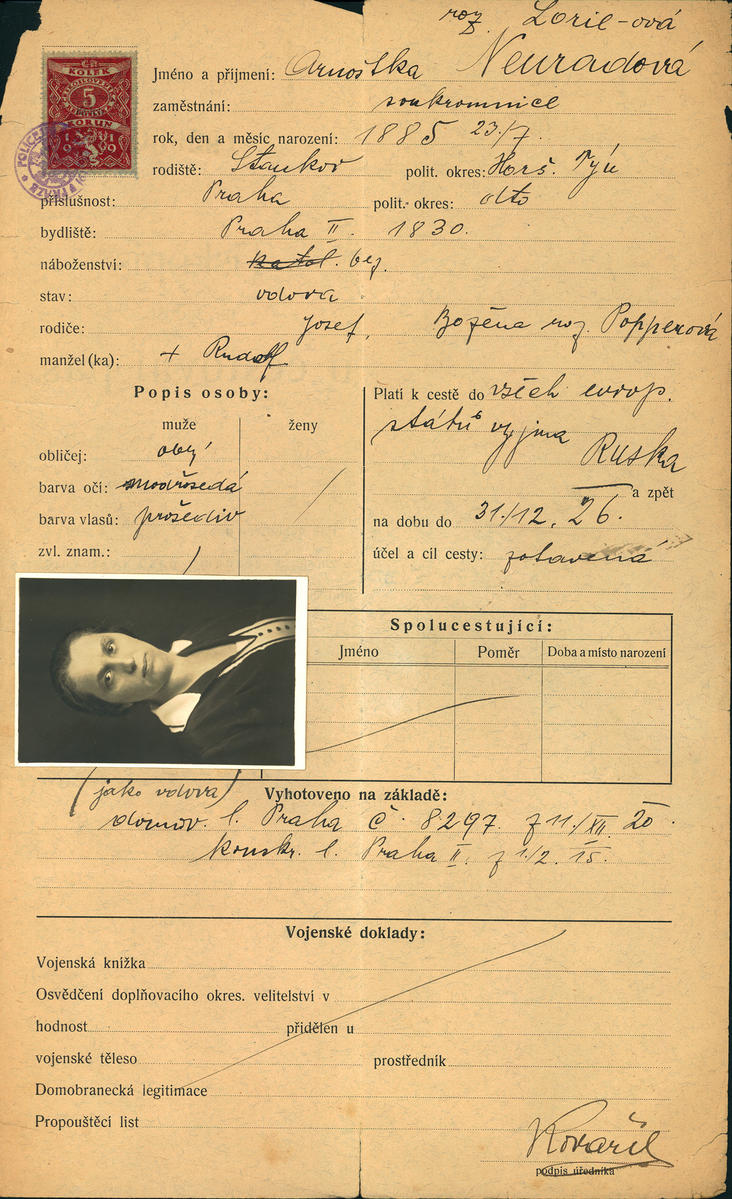 roz Lorie-ová
Jméno a příjmení: Arnoštka Neuradová
KOLEK
5
KORUN
zaměstnání: soukromnice
rok, den a měsíc narození: 1885 23/7.
rodiště: Staňkov polit. okres: Horš. Týn
příslušnost: Praha polit. okres: dtto
bydliště: Praha II. 1830.
náboženství: katol. bez.
stav: vdova
rodiče: Josef, Božena roz. Popperová
manžel(ka): + Rudolf
Popis osoby:
muže ženy
obličej: obl.
barva očí: modrošedá
barva vlasů: prošediv
zvl. znam.:
Platí k cestě do všech evrop.
států vyjma
Ruska
a zpět
na dobu do 31./12. 26.
účel a cíl cesty: zotavená
Spolucestující:
Jméno Poměr Doba a místo narození
(jako vdova)
Vyhotoveno na základě:
domov. l. Praha č. 8297. z 11./XII. 20.
konskr. l. Praha II. z 1./2. 15.
Vojenské doklady:
Vojenská knížka
Osvědčení doplňovacího okres. velitelství v
hodnost přidělen u
vojenské těleso prostředník
Domobranecká legitimace
Propouštěcí list
Kovařík
podpis úředníka